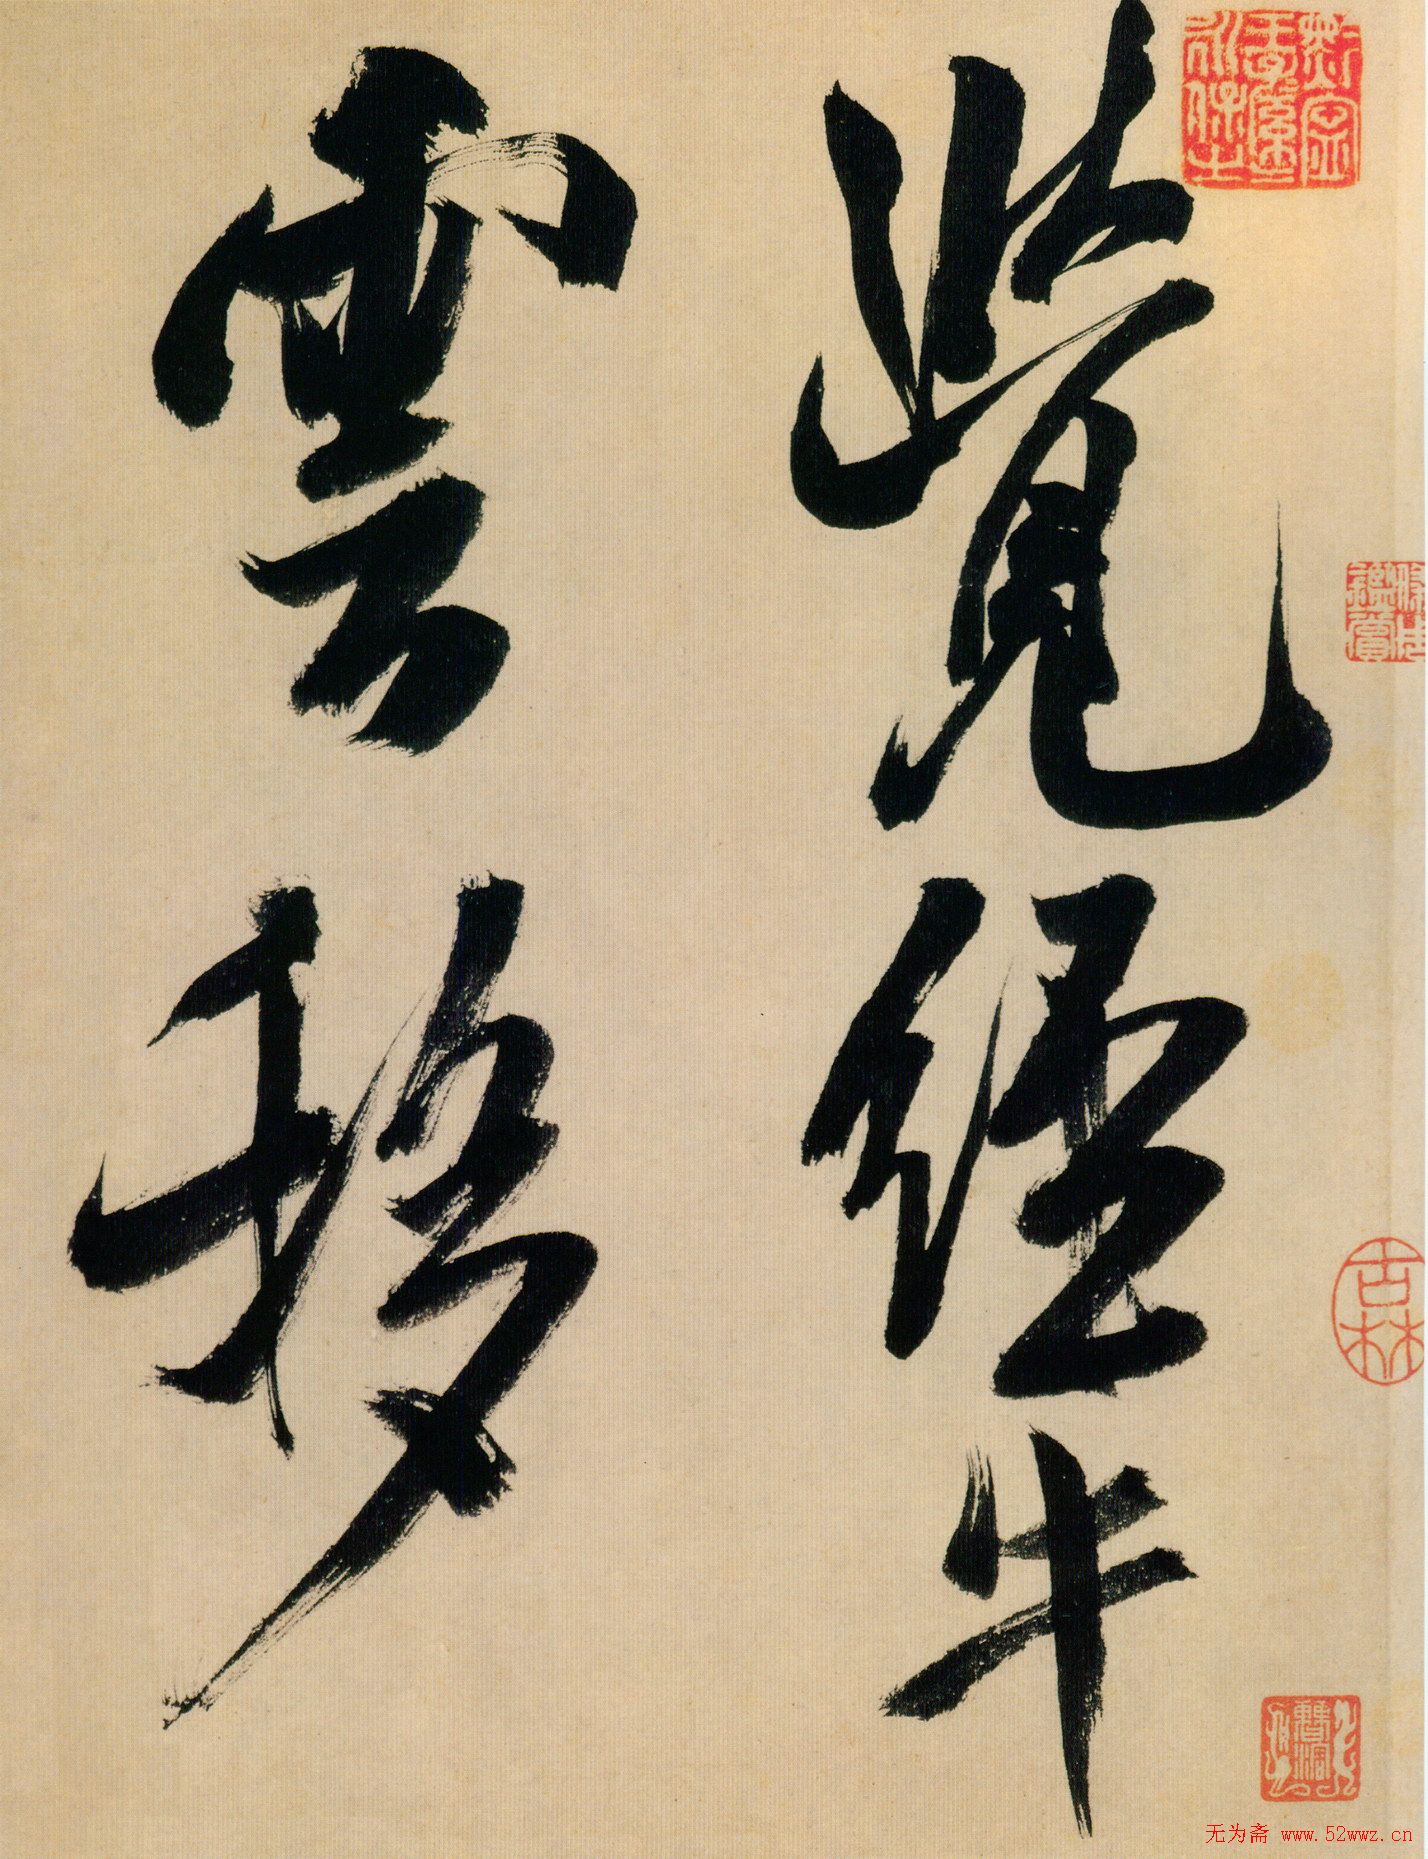 覺經牛
雲移
古林
无为斋 www.52wwz.cn